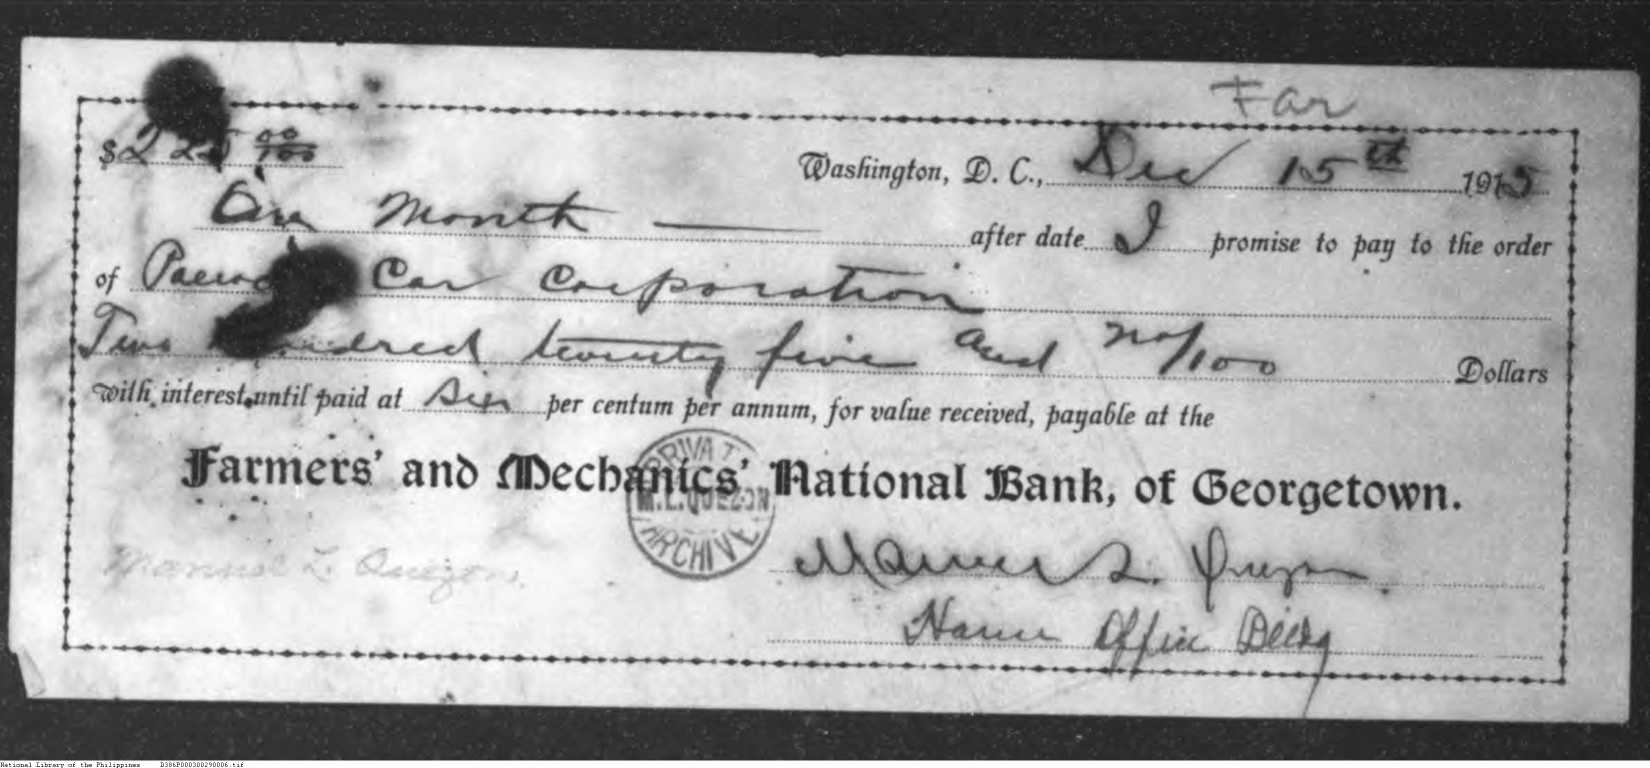 Far
$225 00/100
Washington, D. C., Dec 15th 1915
One Month after date I promise to pay to the order
of Car Corporation
Two Hundred twenty five and no/100 Dollars
with interest until paid at Six per centum per annum, for value received, payable at the
Farmers' and Mechanics' National Bank, of Georgetown.
PRIVATE
M.L.QUEZON
ARCHIVE
Manuel L. Quezon
Manuel L. Quezon
House Office Bldg
National Library of the Philippines D386P000300290006.tif